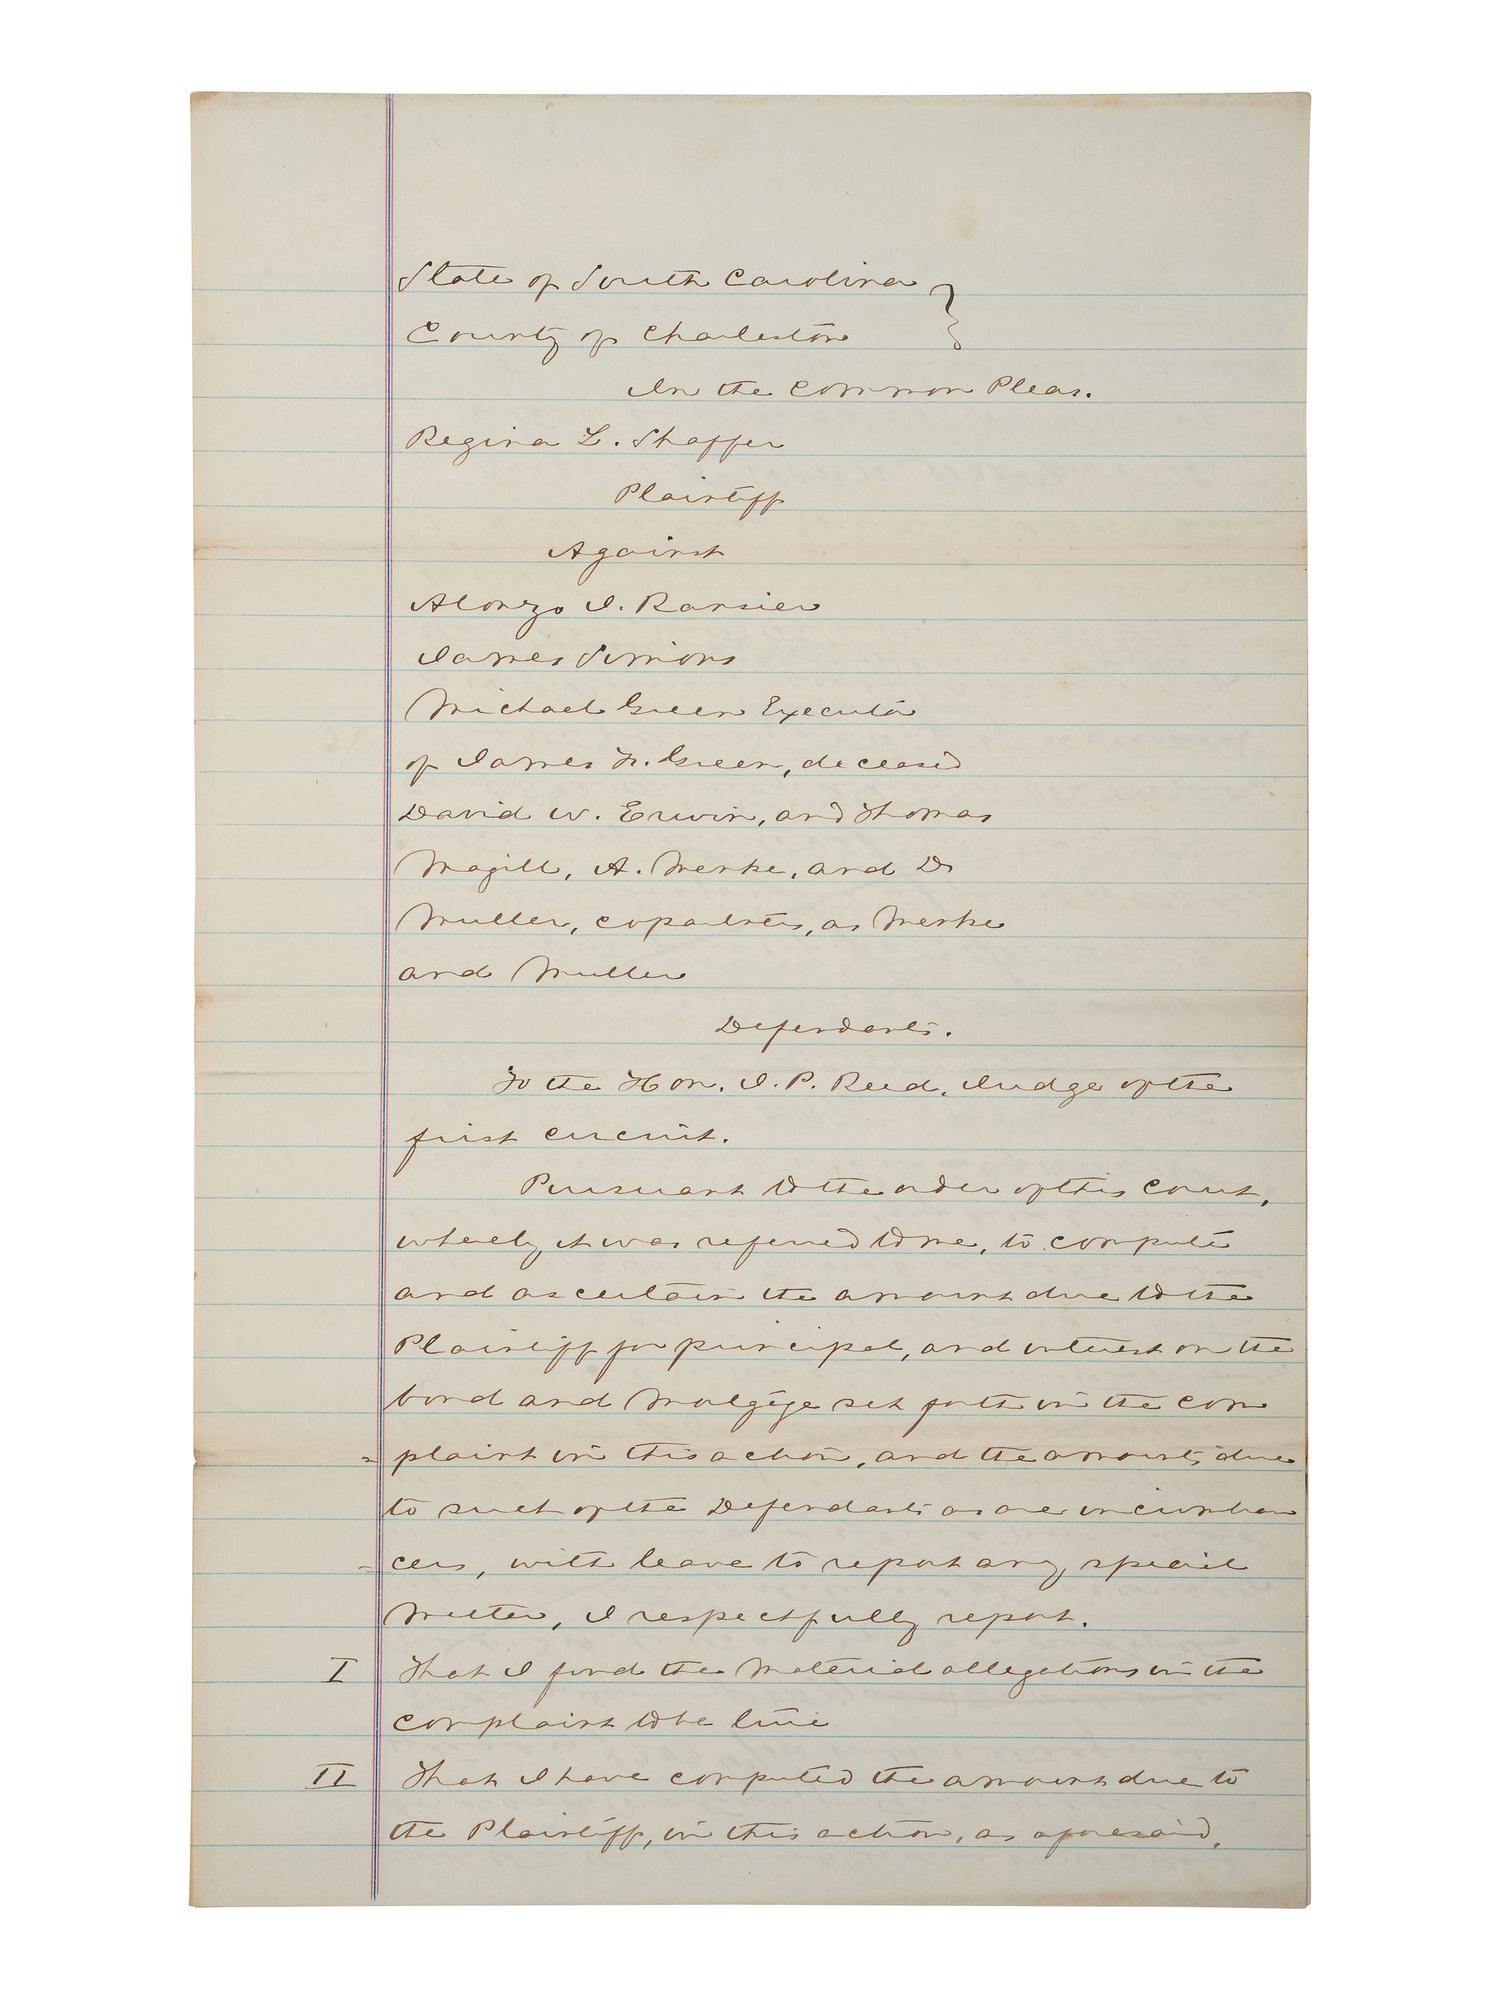 State of South Carolina }
County of Charleston }
In the Common Pleas.
Regina L. Shaffer
Plaintiff
Against
Alonzo J. Ransier
James Simons
Michael Green Executor
of James F. Green, deceased
David W. Erwin, and Thomas
Magill, A. Merke, and D
Muller, copartners, as Merke
and Muller
Defendants.
To the Hon. J. P. Reed, Judge of the
first circuit.
Pursuant to the order of this Court,
whereby it was referred to me, to compute
and ascertain the amount due to the
Plaintiff for principal, and interest on the
bond and Mortgage set forth in the Com
=plaint in this action, and the amounts due
to such of the Defendants as are incumbran
=cers, with leave to report any special
Matter, I respectfully report.
I That I find the Material allegations in the
complaint to be true
II That I have computed the amount due to
the Plaintiff, in this action, as aforesaid,